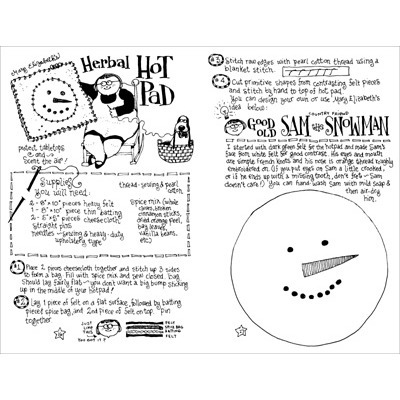 Mary Elizabeth's
Herbal Hot
Pad
protect tabletops
and
Scent the air!
Supplies
You will need:
2 - 8" x 10" pieces heavy felt
1 - 8" x 10" piece thin batting
2 - 5" x 8" piece cheese cloth
Straight pins
needles - sewing & heavy-duty
upholstery type
thread - sewing & pearl
cotton
Spice mix (whole
cloves, broken
cinnamon sticks,
dried orange peel,
bay leaves,
vanilla beans,
etc)
#1 Place 2 pieces cheesecloth together and stitch up 3 sides
to form a bag. Fill with spice mix and sew closed. Bag
should lay fairly flat - you don't want a big bump sticking
up in the middle of your hotpad!
#2 Lay 1 piece of felt on a flat surface, followed by batting
piece, spice bag, and 2nd piece of felt on top. Pin
together.
JUST
LIKE
THIS
YOU GOT IT?
FELT
SPICE BAG
BATTING
FELT
#3 Stitch raw edges with pearl cotton thread using a
blanket stitch.
#4 Cut primitive shapes from contrasting felt pieces
and stitch by hand to top of hot pad.
You can design your own or use Mary Elizabeth's
idea below:
COUNTRY FRIEND
Good Old Sam the Snowman
I started with dark green felt for the hotpad and made Sam's
face from white felt for good contrast. His eyes and mouth
are simple french knots and his nose is orange thread roughly
embroidered on. (If you put eyes on Sam a little crooked,
or if he ends up with a missing tooth, don't fret - Sam
doesn't care!) You can hand wash Sam with mild soap &
then air-dry
him.